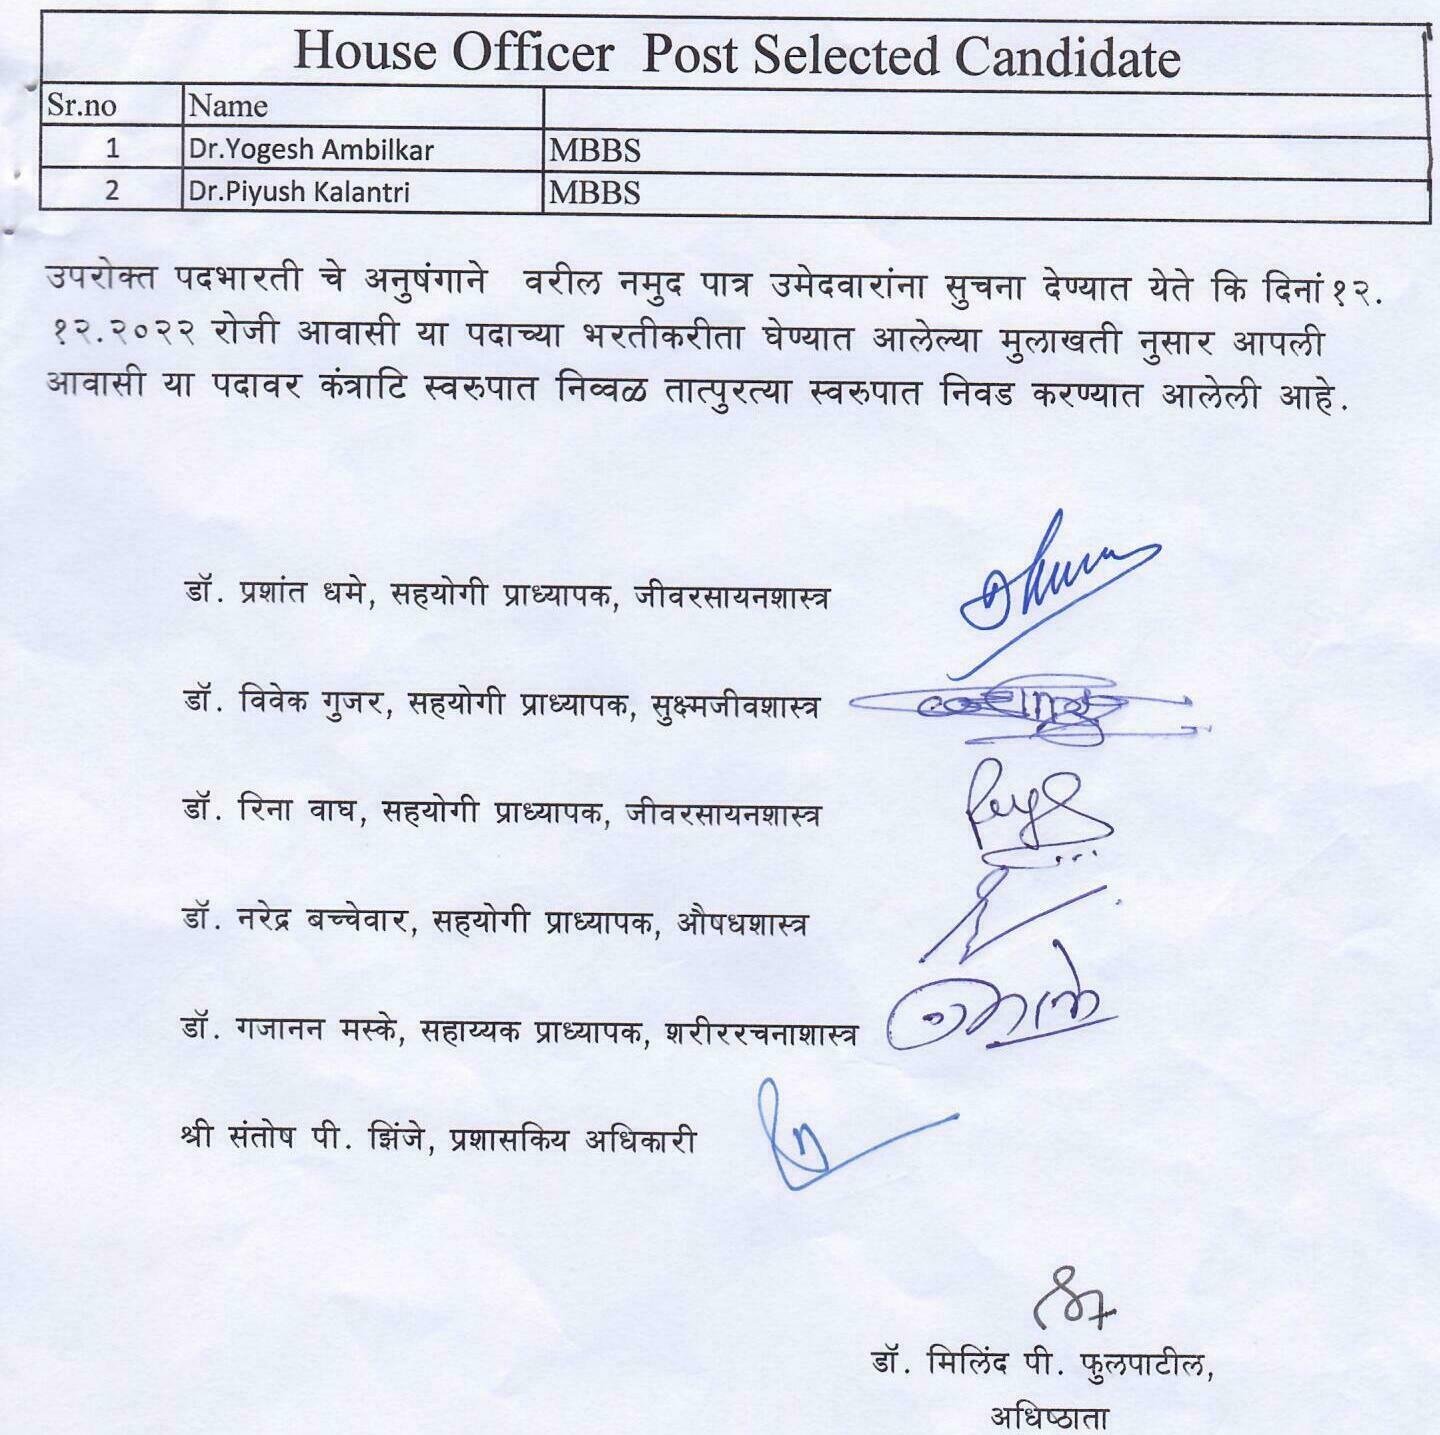 House Officer Post Selected Candidate
Sr.no Name
1 Dr.Yogesh Ambilkar MBBS
2 Dr.Piyush Kalantri MBBS
उपरोक्त पदभारती चे अनुषंगाने वरील नमुद पात्र उमेदवारांना सुचना देण्यात येते कि दिनां१२.
१२.२०२२ रोजी आवासी या पदाच्या भरतीकरीता घेण्यात आलेल्या मुलाखती नुसार आपली
आवासी या पदावर कंत्राटि स्वरुपात निव्वळ तात्पुरत्या स्वरुपात निवड करण्यात आलेली आहे.
डॉ. प्रशांत धमे, सहयोगी प्राध्यापक, जीवरसायनशास्त्र
डॉ. विवेक गुजर, सहयोगी प्राध्यापक, सुक्ष्मजीवशास्त्र
डॉ. रिना वाघ, सहयोगी प्राध्यापक, जीवरसायनशास्त्र
डॉ. नरेद्र बच्चेवार, सहयोगी प्राध्यापक, औषधशास्त्र
डॉ. गजानन मस्के, सहाय्यक प्राध्यापक, शरीररचनाशास्त्र
श्री संतोष पी. झिंजे, प्रशासकिय अधिकारी
डॉ. मिलिंद पी. फुलपाटील,
अधिष्ठाता